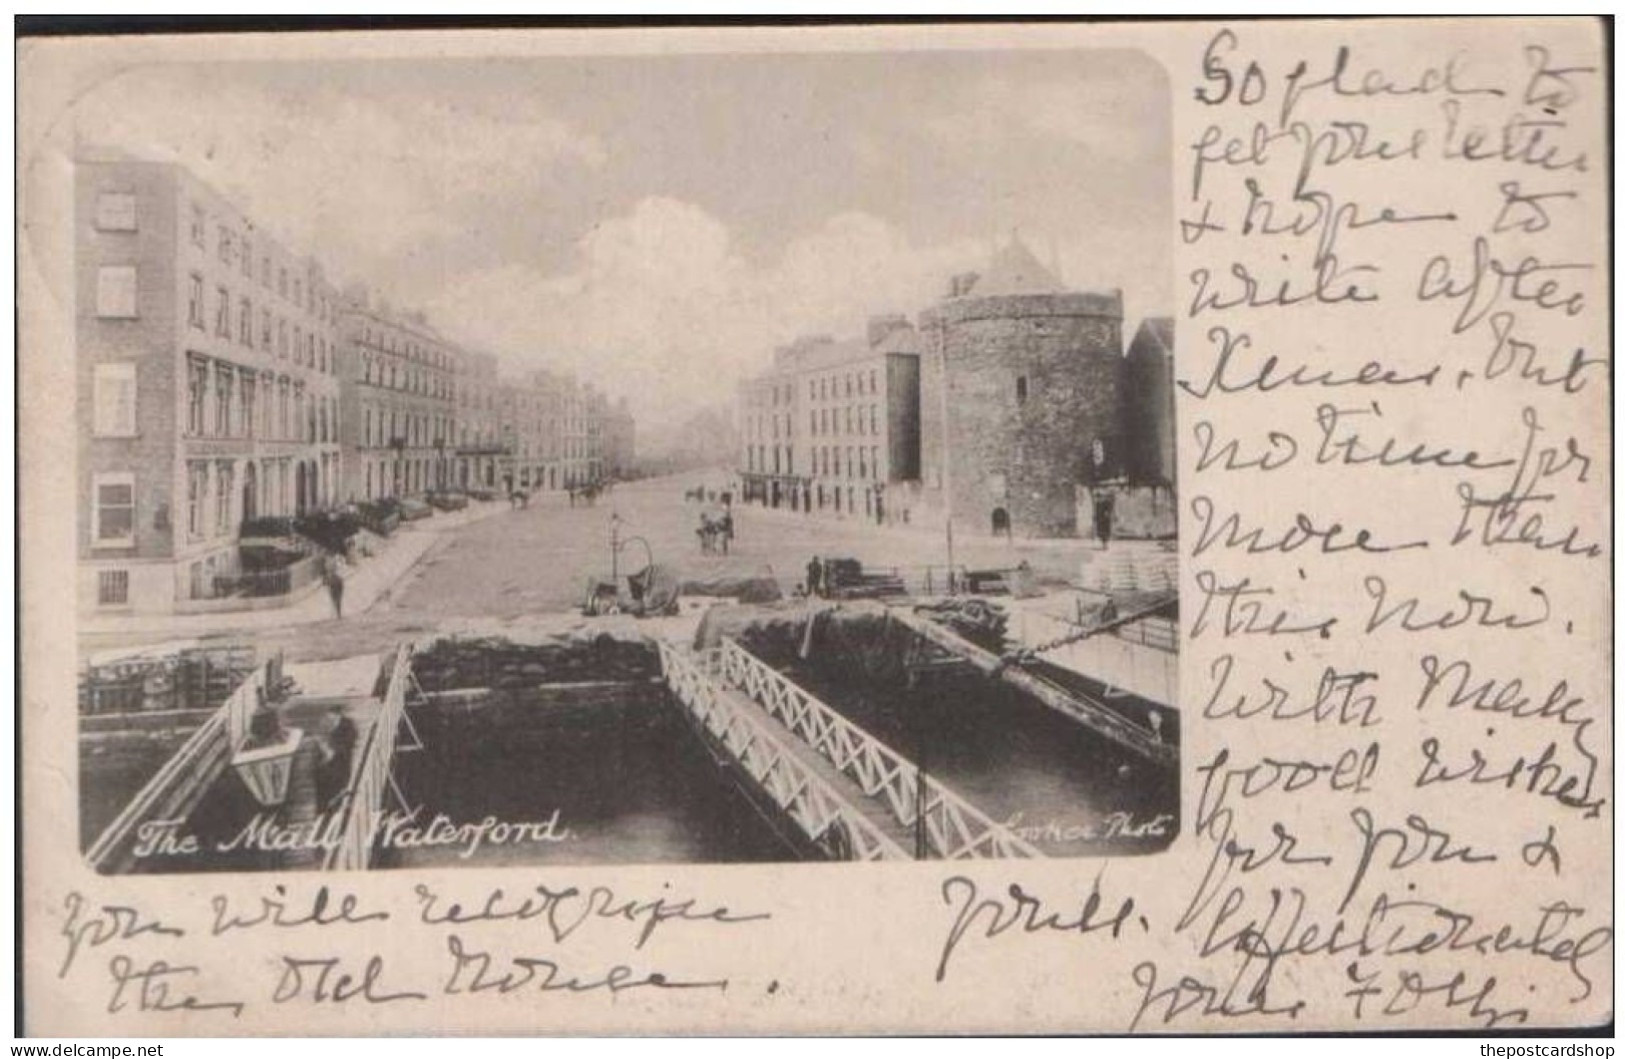 So glad to
get your letter
& hope to
write after
Xmas. but
no time for
more than
this now.
With many
good wishes
for you &
yours.
affectionately
yours
The Mall Waterford.
Photo
You will recognise
the old house.
© delcampe.net
thepostcardshop